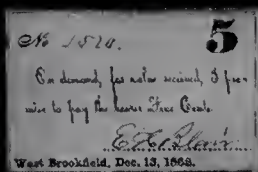 No 1520.
5
On demand, for value received, I pro-
mise to pay the bearer Five Cents.
E. H. Blair.
West Brookfield, Dec. 13, 1862.